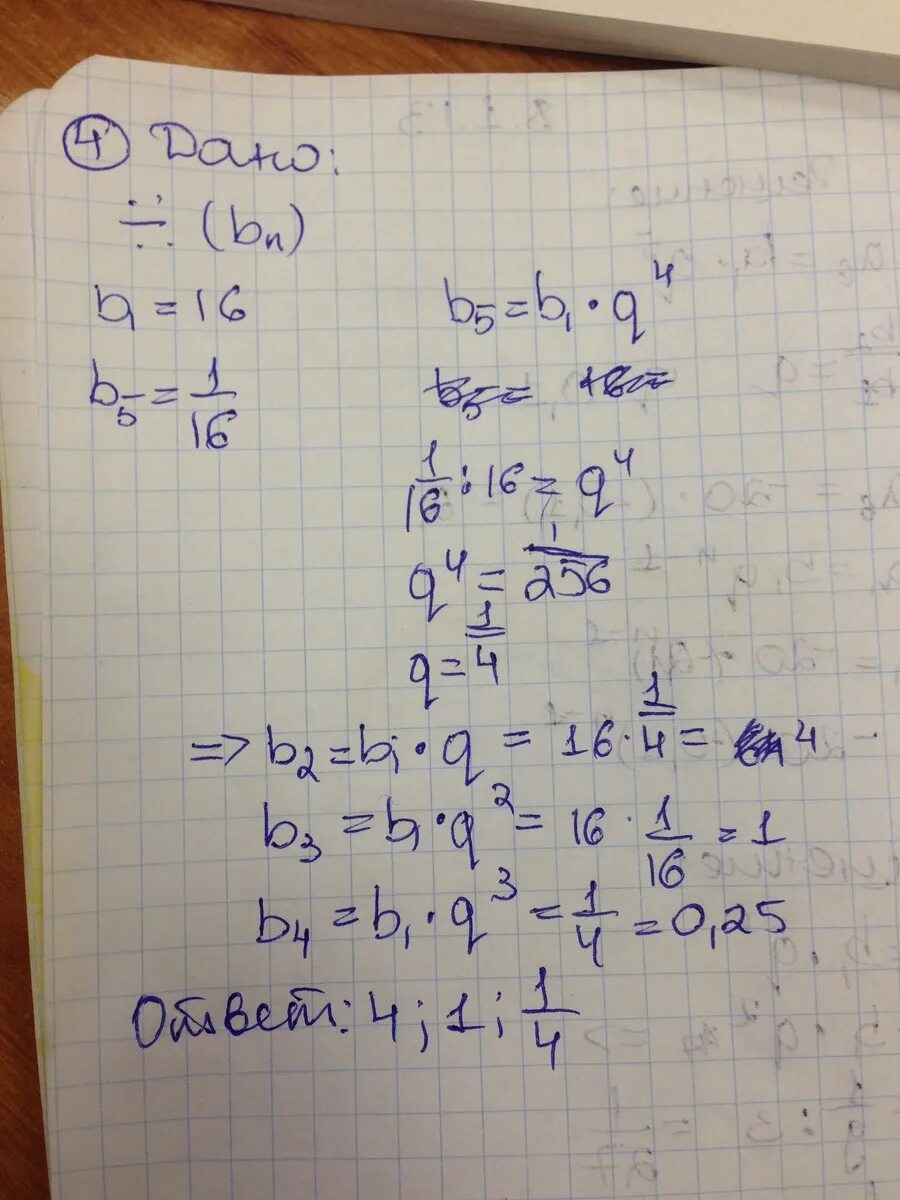 ④ Дано:
∺ (bₙ)
b₁ = 16
b₅ = 1/16
b₅ = b₁ · q⁴
1/16 : 16 = q⁴
q⁴ = 1/256
q = 1/4
=> b₂ = b₁ · q = 16 · 1/4 = 4
b₃ = b₁ · q² = 16 · 1/16 = 1
b₄ = b₁ · q³ = 1/4 = 0,25
Ответ: 4; 1; 1/4